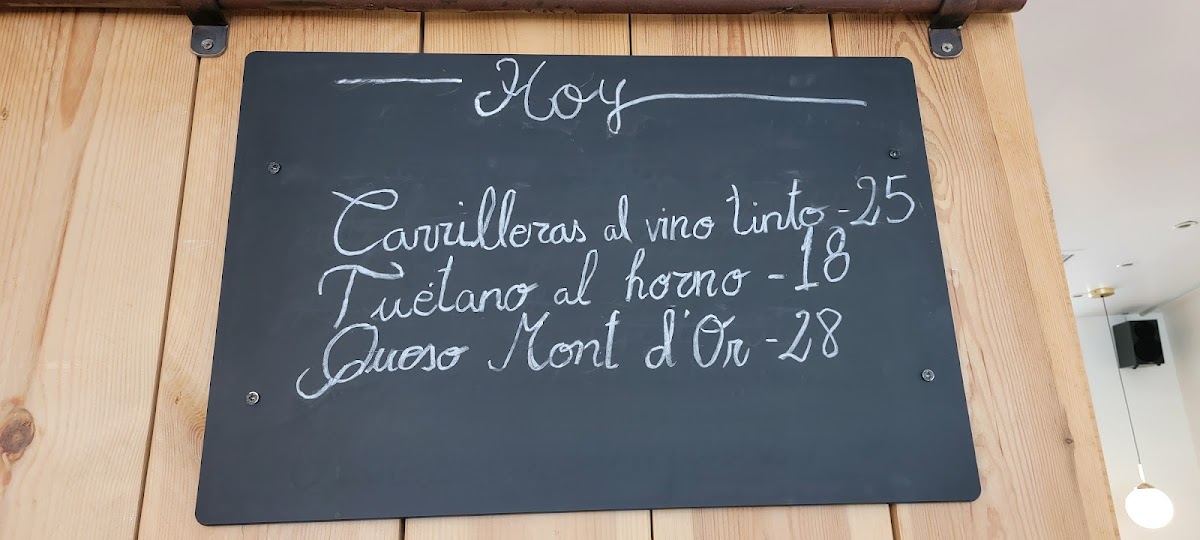 Hoy
Carrilleras al vino tinto - 25
Tuétano al horno - 18
Queso Mont d'Or - 28